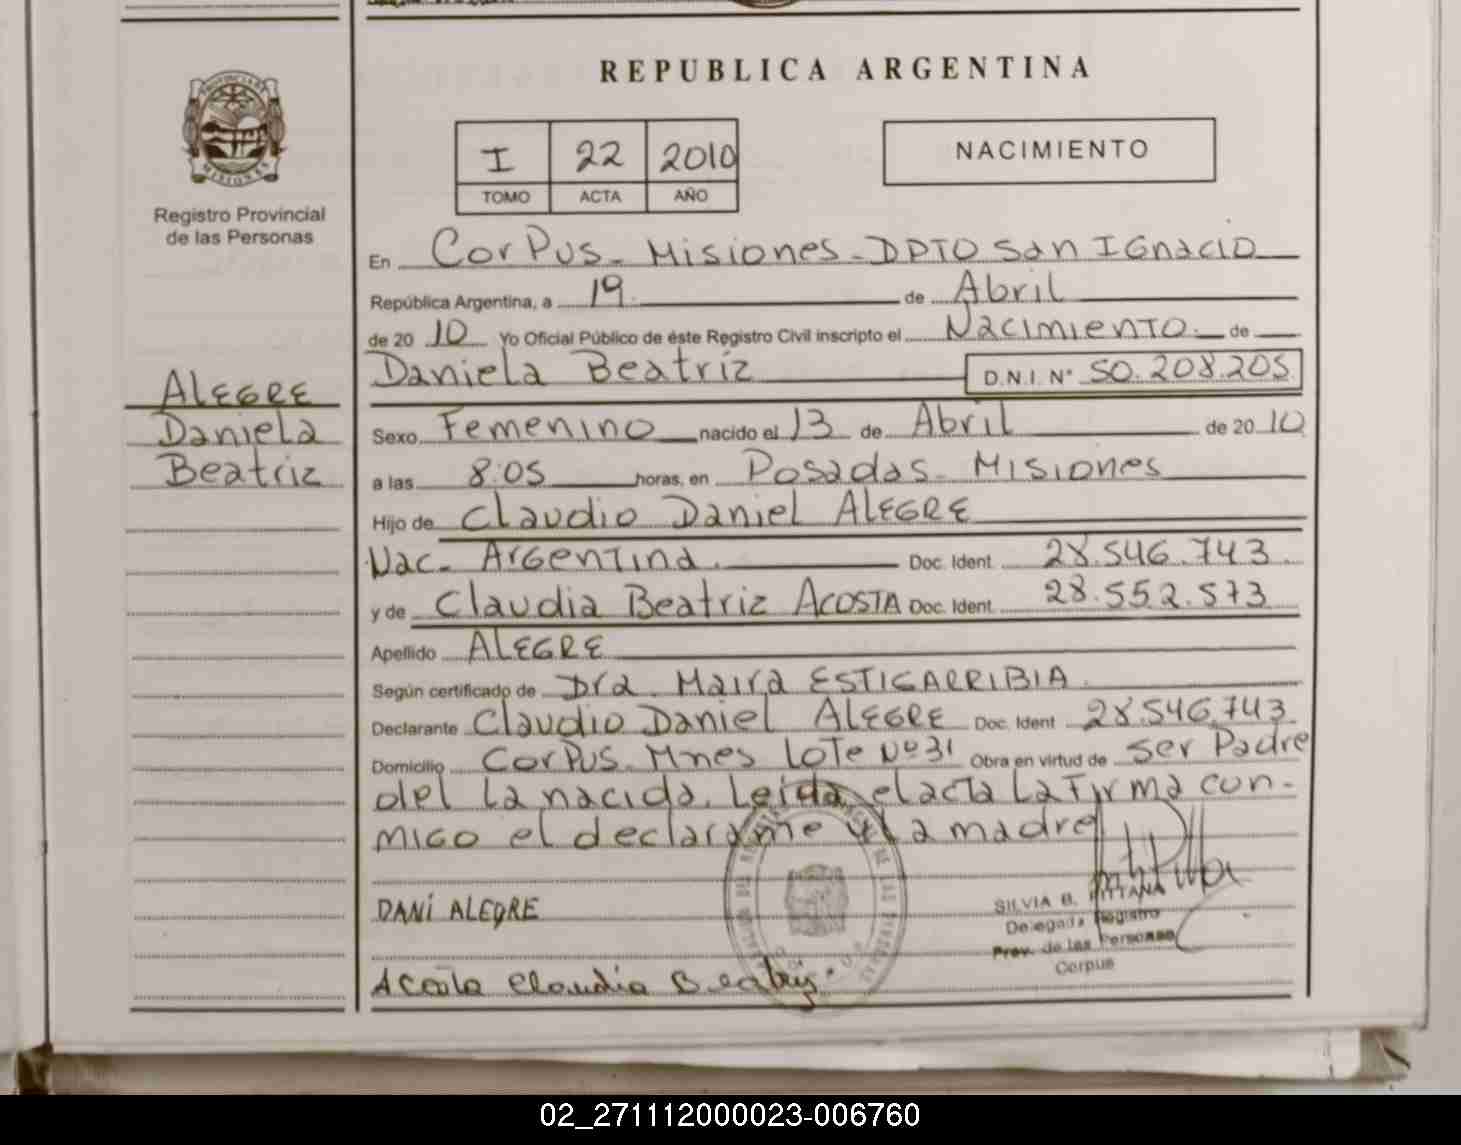 REPUBLICA ARGENTINA
PROVINCIA DE
MISIONES
Registro Provincial
de las Personas
I 22 2010
TOMO ACTA AÑO
NACIMIENTO
En CorPus - Misiones - DPTO San IGnacio
República Argentina, a 19 de Abril
de 20 10 Yo Oficial Público de éste Registro Civil inscripto el Nacimiento de
Daniela Beatriz D.N.I. N° 50.208.205
ALEGRE
Daniela
Beatriz
Sexo Femenino nacido el 13 de Abril de 20 10
a las 8:05 horas, en Posadas - Misiones
Hijo de Claudio Daniel ALEGRE
Nac. Argentina. Doc. Ident. 28.546.743.
y de Claudia Beatriz ACOSTA Doc. Ident. 28.552.573
Apellido ALEGRE
Según certificado de Dra. Maira ESTIGARRIBIA.
Declarante Claudio Daniel ALEGRE Doc. Ident 28.546.743
Domicilio CorPus - Mnes Lote Nº 31 Obra en virtud de Ser Padre
del la nacida. Leida el acta La Firma con-
migo el declarame y la madre
DANi ALEGRE
SILVIA B. PITTANA
Delegada Registro
Prov. de las Personas
Corpus
Acosta Claudia Beatriz.
02_271112000023-006760